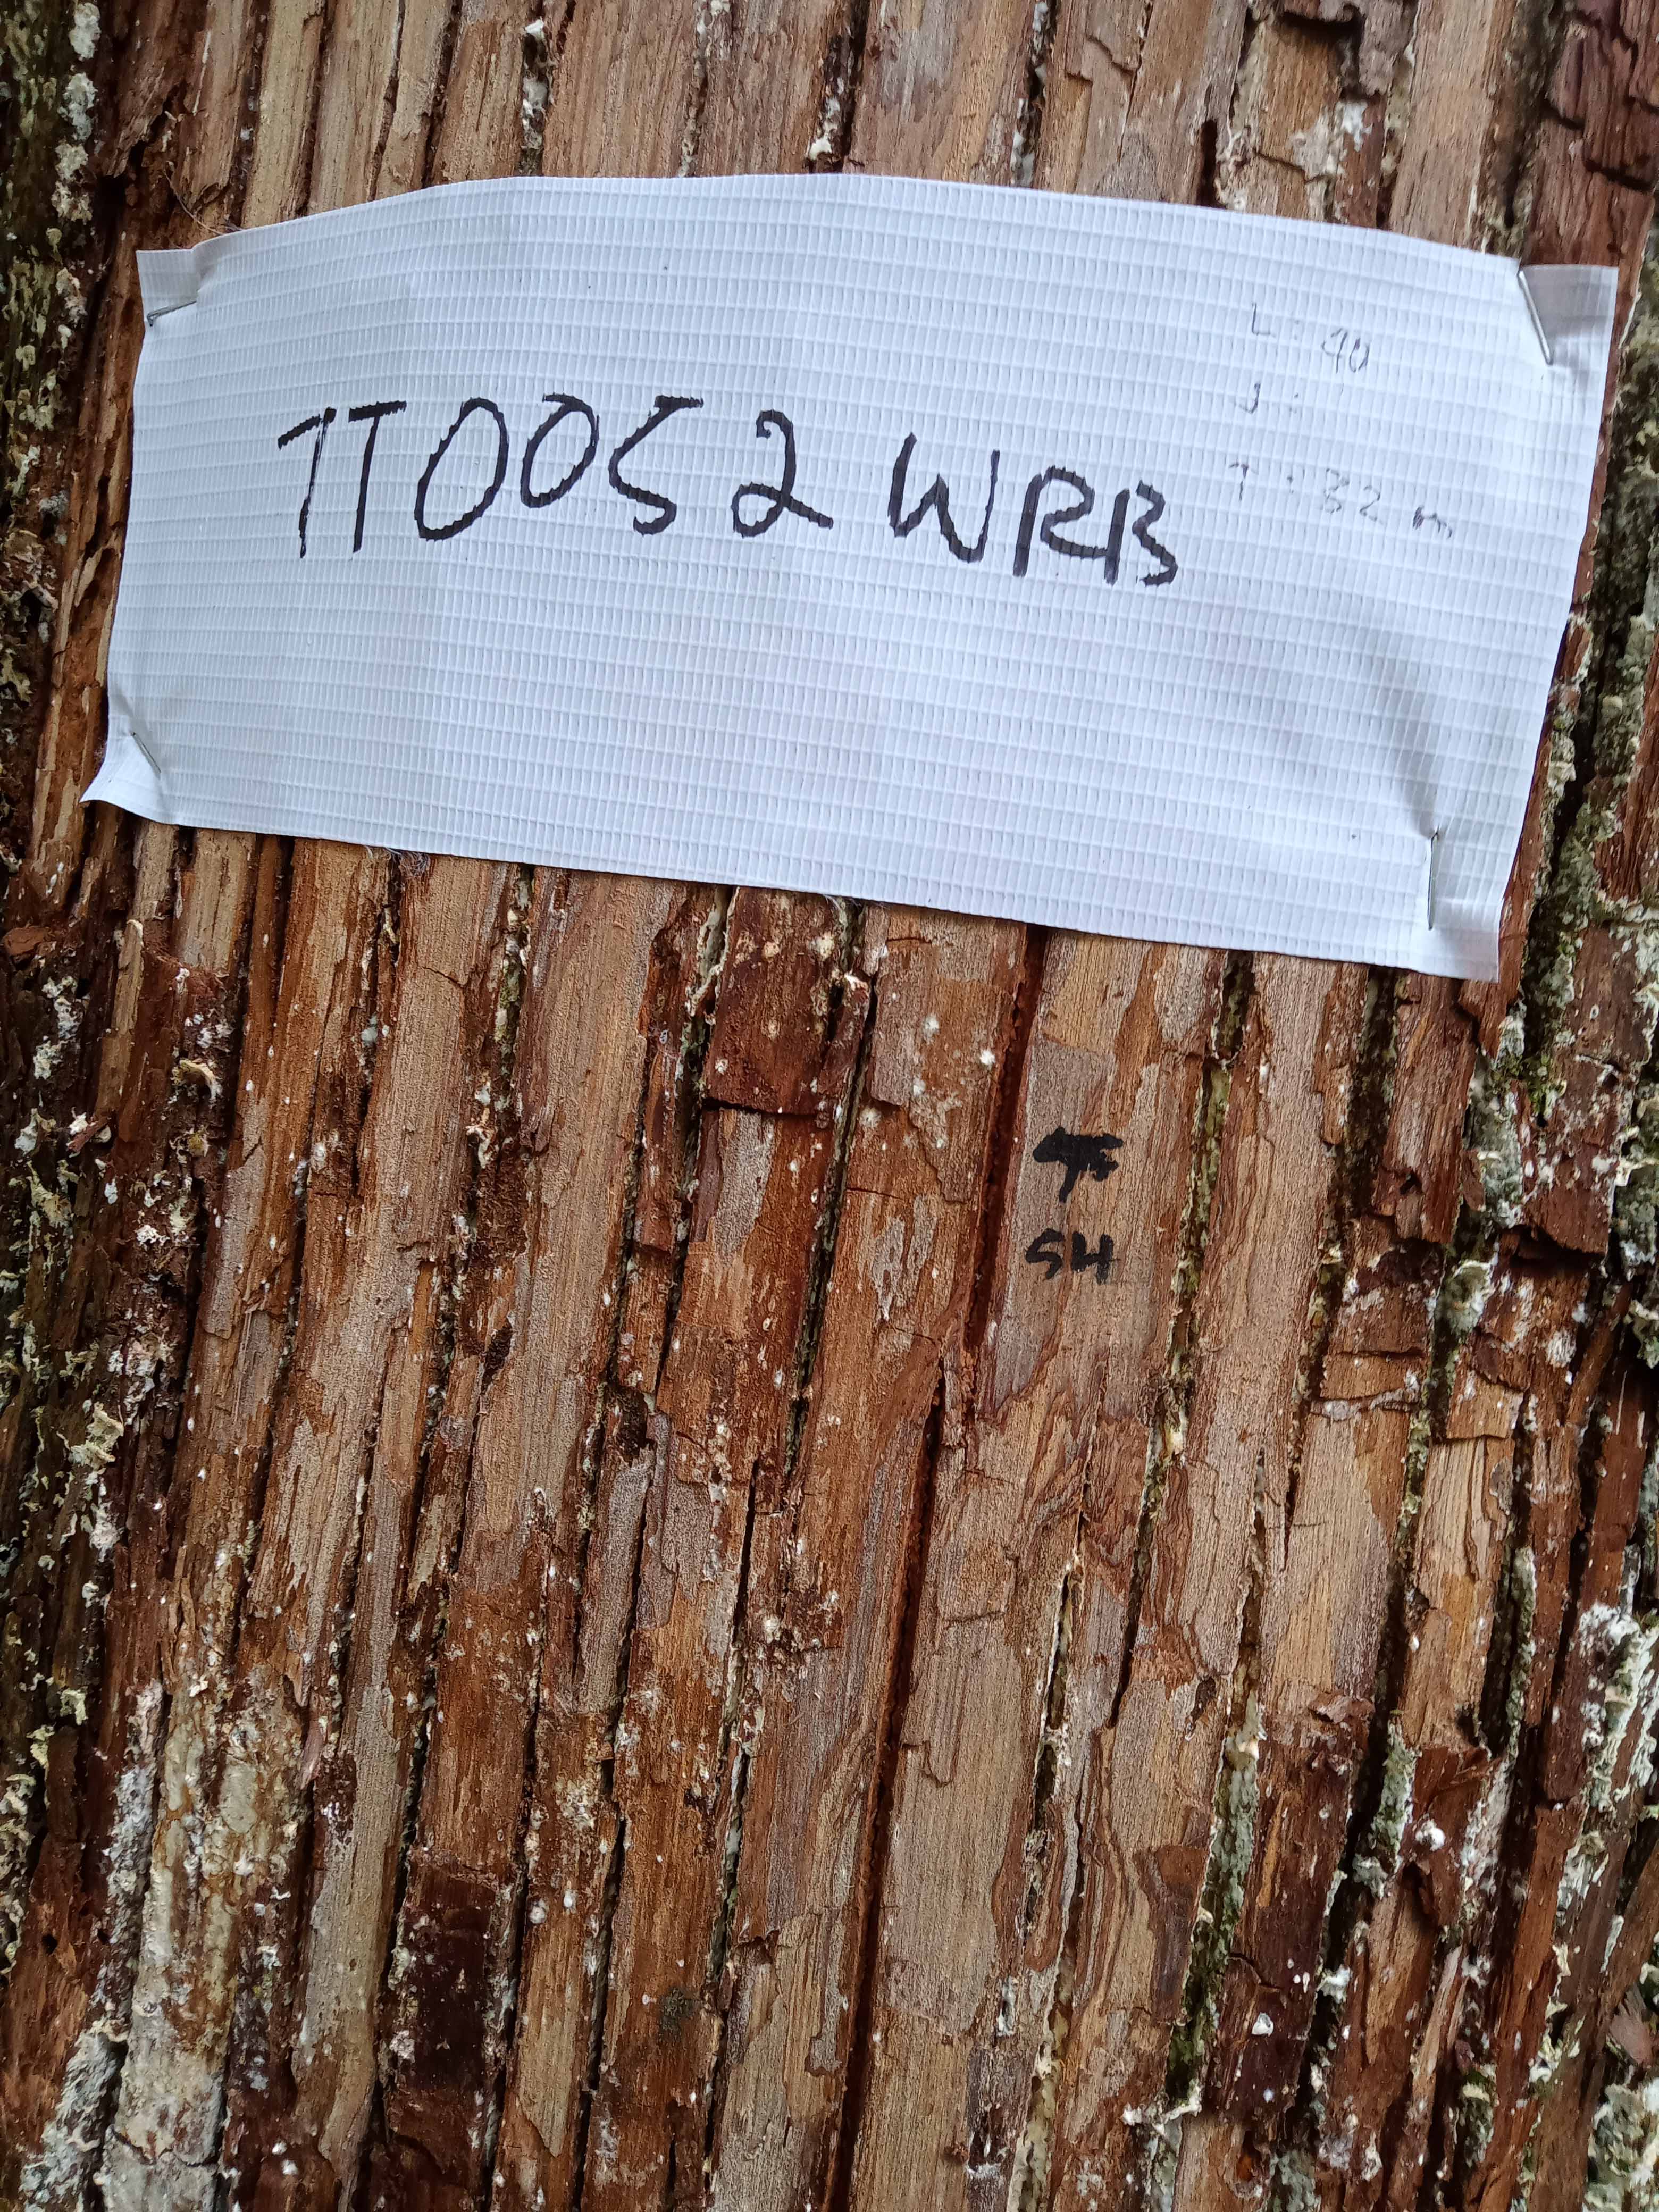 1T0052 WRB
L: 90
J:
T: 32 m
54